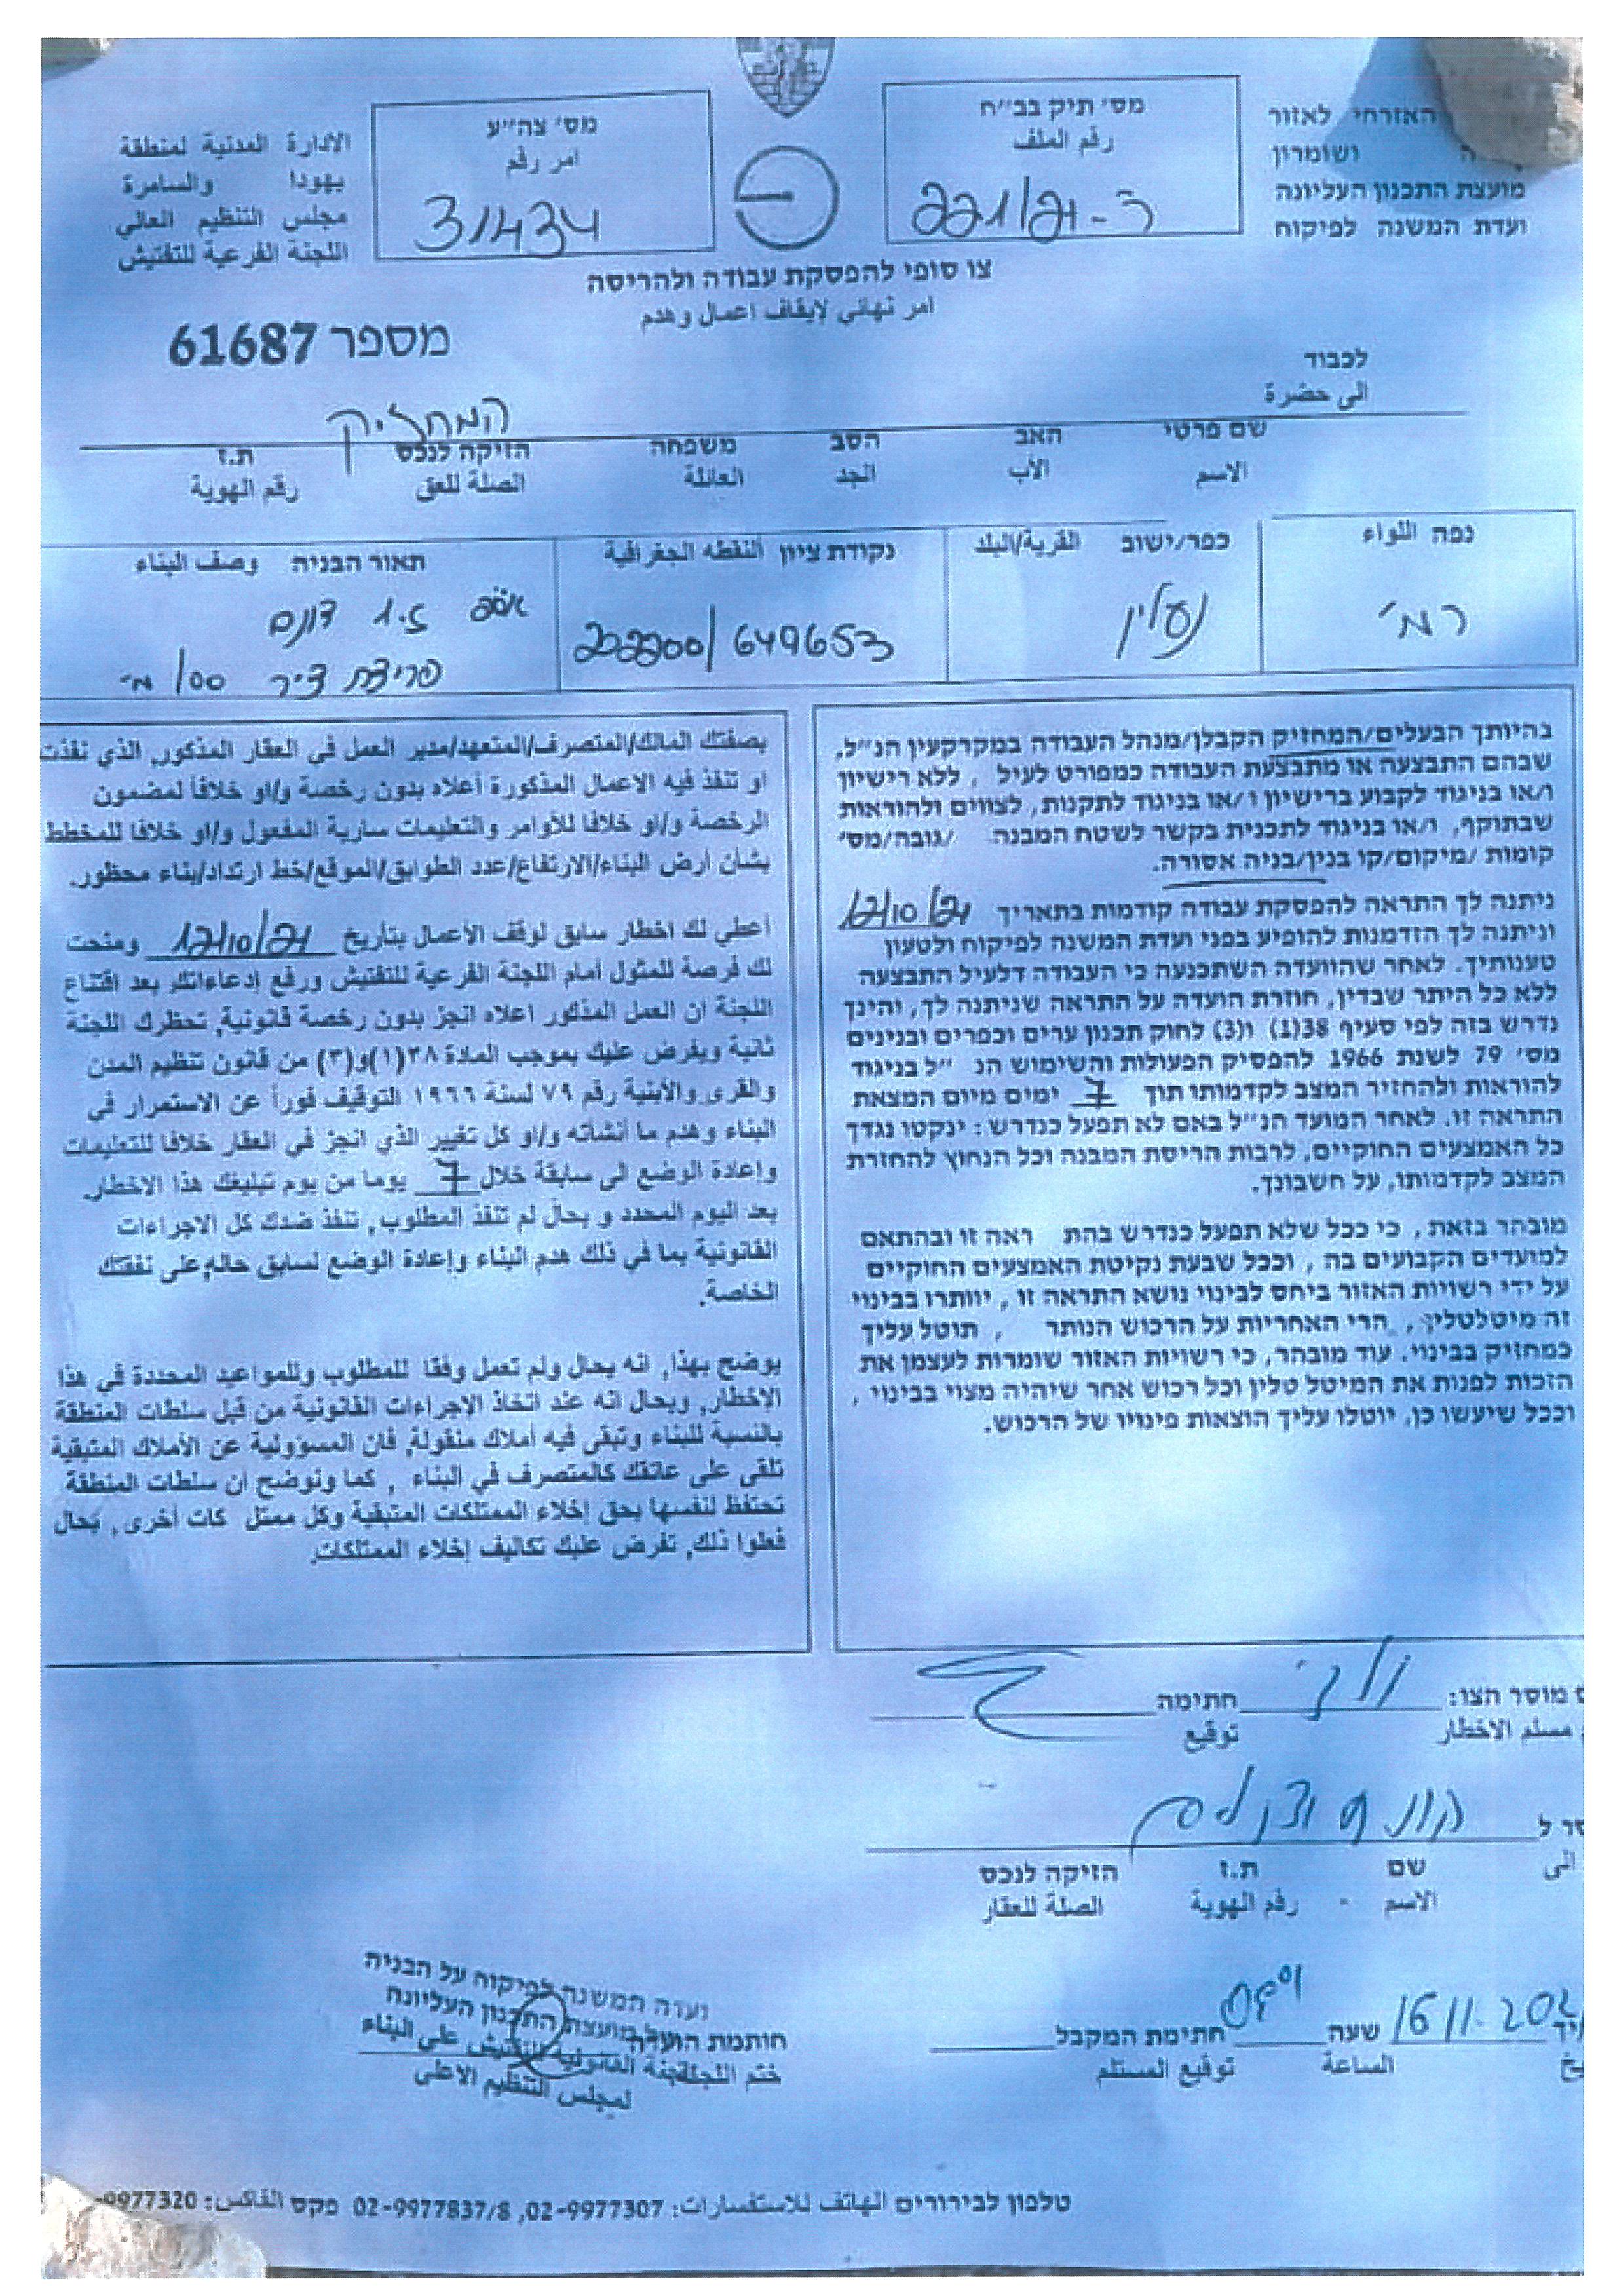 האזרחי לאזור
ושומרון
מועצת התכנון העליונה
ועדת המשנה לפיקוח
מס׳ תיק בב״ח
رقم الملف
ר-221/21
מס׳ צה״ע
امر رقم
31434
الادارة المدنية لمنطقة
يهودا والسامرة
مجلس التنظيم العالي
اللجنة الفرعية للتفتيش
צו סופי להפסקת עבודה ולהריסה
امر نهائي لإيقاف اعمال وهدم
מספר 61687
לכבוד
الى حضرة
המחזיק
שם פרטי האב הסב משפחה הזיקה לנכס ת.ז
الاسم الأب الجد العائلة الصلة للعق رقم الهوية
נפה اللواء
רמ׳
כפר/ישוב القرية/البلد
נעלין
נקודת ציון النقطه الجغرافية
222200/649653
תאור הבניה وصف البناء
1.2 דונם
פריצת דרך 100 מ׳
בהיותך הבעלים/המחזיק הקבלן/מנהל העבודה במקרקעין הנ״ל,
שבהם התבצעה או מתבצעת העבודה כמפורט לעיל , ללא רישיון
ו/או בניגוד לקבוע ברישיון ו/או בניגוד לתקנות, לצווים ולהוראות
שבתוקף, ו/או בניגוד לתכנית בקשר לשטח המבנה /גובה/מס׳
קומות /מיקום/קו בנין/בניה אסורה.
ניתנה לך התראה להפסקת עבודה קודמות בתאריך 12/10/21
וניתנה לך הזדמנות להופיע בפני ועדת המשנה לפיקוח ולטעון
טענותיך. לאחר שהוועדה השתכנעה כי העבודה דלעיל התבצעה
ללא כל היתר שבדין, חוזרת הועדה על התראה שניתנה לך, והינך
נדרש בזה לפי סעיף 38(1) ו(3) לחוק תכנון ערים וכפרים ובנינים
מס׳ 79 לשנת 1966 להפסיק הפעולות והשימוש הנ ״ל בניגוד
להוראות ולהחזיר המצב לקדמותו תוך 7 ימים מיום המצאת
התראה זו. לאחר המועד הנ״ל באם לא תפעל כנדרש: ינקטו נגדך
כל האמצעים החוקיים, לרבות הריסת המבנה וכל הנחוץ להחזרת
המצב לקדמותו, על חשבונך.
מובהר בזאת, כי ככל שלא תפעל כנדרש בהת ראה זו ובהתאם
למועדים הקבועים בה, וככל שבעת נקיטת האמצעים החוקיים
על ידי רשויות האזור ביחס לבינוי נושא התראה זו, יוותרו בבינוי
זה מיטלטלין, הרי האחריות על הרכוש הנותר , תוטל עליך
כמחזיק בבינוי. עוד מובהר, כי רשויות האזור שומרות לעצמן את
הזכות לפנות את המיטל טלין וכל רכוש אחר שיהיה מצוי בבינוי,
וככל שיעשו כן, יוטלו עליך הוצאות פינויו של הרכוש.
بصفتك المالك/المتصرف/المتعهد/مدير العمل في العقار المذكور, الذي نفذت
او تنفذ فيه الاعمال المذكورة أعلاه بدون رخصة و/او خلافاً لمضمون
الرخصة و/او خلافا للأوامر والتعليمات سارية المفعول و/او خلافا للمخطط
بشأن أرض البناء/الارتفاع/عدد الطوابق/الموقع/خط ارتداد/بناء محظور.
أعطي لك اخطار سابق لوقف الأعمال بتأريخ 12/10/21 ومنحت
لك فرصة للمثول أمام اللجنة الفرعية للتفتيش ورفع إدعاءاتك بعد اقتناع
اللجنة ان العمل المذكور اعلاه انجز بدون رخصة قانونية, تحظرك اللجنة
ثانية ويفرض عليك بموجب المادة ٣٨(١)و(٣) من قانون تنظيم المدن
والقرى والأبنية رقم ٧٩ لسنة ١٩٦٦ التوقيف فوراً عن الاستمرار في
البناء وهدم ما أنشأته و/او كل تغيير الذي انجز في العقار خلافا للتعليمات
وإعادة الوضع الى سابقة خلال 7 يوما من يوم تبليغك هذا الاخطار.
بعد اليوم المحدد و بحال لم تنفذ المطلوب, تنفذ ضدك كل الاجراءات
القانونية بما في ذلك هدم البناء وإعادة الوضع لسابق حاله, على نفقتك
الخاصة.
يوضح بهذا, انه بحال ولم تعمل وفقا للمطلوب وللمواعيد المحددة في هذا
الإخطار, وبحال انه عند اتخاذ الاجراءات القانونية من قبل سلطات المنطقة
بالنسبة للبناء وتبقى فيه أملاك منقولة, فان المسؤولية عن الأملاك المتبقية
تلقى على عاتقك كالمتصرف في البناء , كما ونوضح أن سلطات المنطقة
تحتفظ لنفسها بحق إخلاء الممتلكات المتبقية وكل ممتل كات أخرى, بحال
فعلوا ذلك, تفرض عليك تكاليف إخلاء الممتلكات.
מוסר הצו: חתימה
مسلم الاخطار توقيع
שם ת.ז הזיקה לנכס
الى الاسم رقم الهوية الصلة للعقار
16.11.202 שעה חתימת המקבל
الساعة توقيع المستلم
ועדה המשנה לפיקוח על הבניה
מועצת התכנון העליונה
חותמת הועדה
ختم اللجنة
للتفتيش على البناء
لمجلس التنظيم الاعلى
טלפון לבירורים الهاتف للاستفسارات: 02-9977307, 02-9977837/8 פקס الفاكس: 9977320-